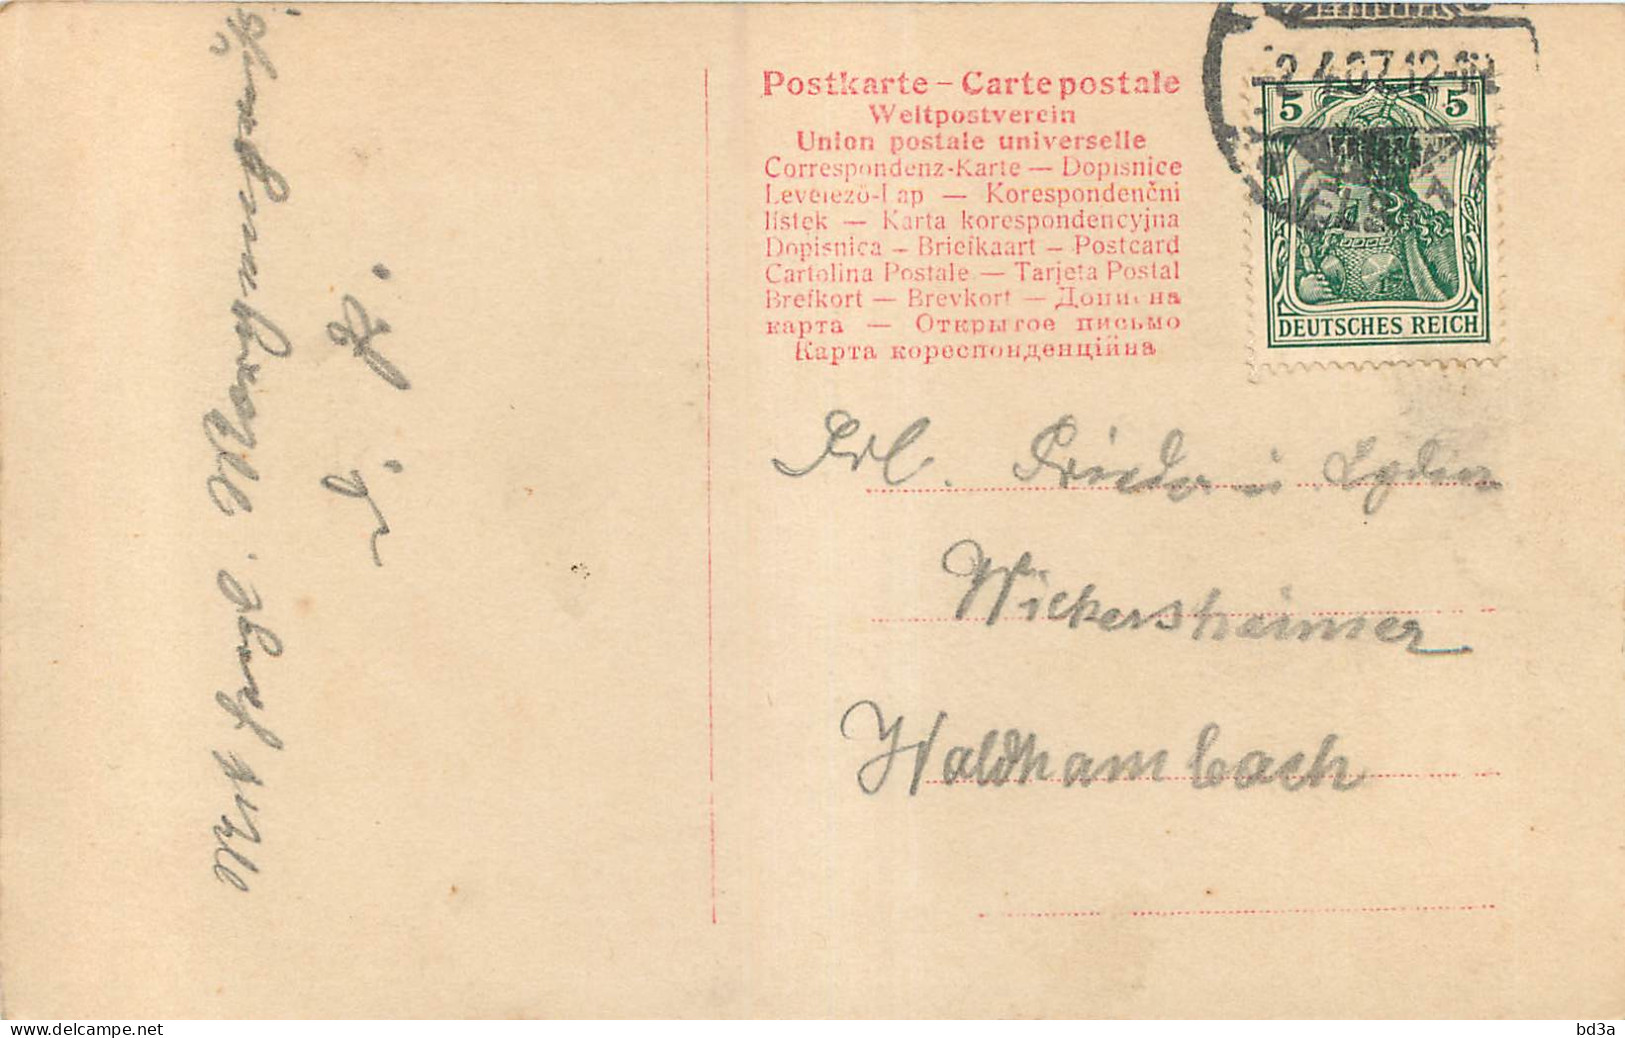 Postkarte – Carte postale
Weltpostverein
Union postale universelle
Correspondenz-Karte — Dopisnice
Levelező-Lap — Korespondenční
lístek — Karta korespondencyjna
Dopisnica – Briefkaart – Postcard
Cartolina Postale — Tarjeta Postal
Brefkort — Brevkort — Дописна
карта — Открытое письмо
Карта кореспонденційна
-2.4.07.12-
5 5
DEUTSCHES REICH
Frl. Frieda u Lydia
Wickersheimer
Waldhambach